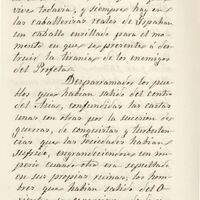 vive todavía, y siempre hay en
las caballerizas reales de Ispahan
un caballo ensillado para el mo-
mento en que se presente á des-
truir la tiranía de los enemigos
del Profeta.
Desparramados los pue-
blos que habian salido del centro
del Asia, confundidas las castas
unas con otras por la sucesion de
guerras, de conquistas y turbulen-
cias que las sociedades habian
sufrido, engrandeciéndose un im-
perio cuando otro era sepultado
en sus propias ruinas; los hom-
bres que habian salido del O-